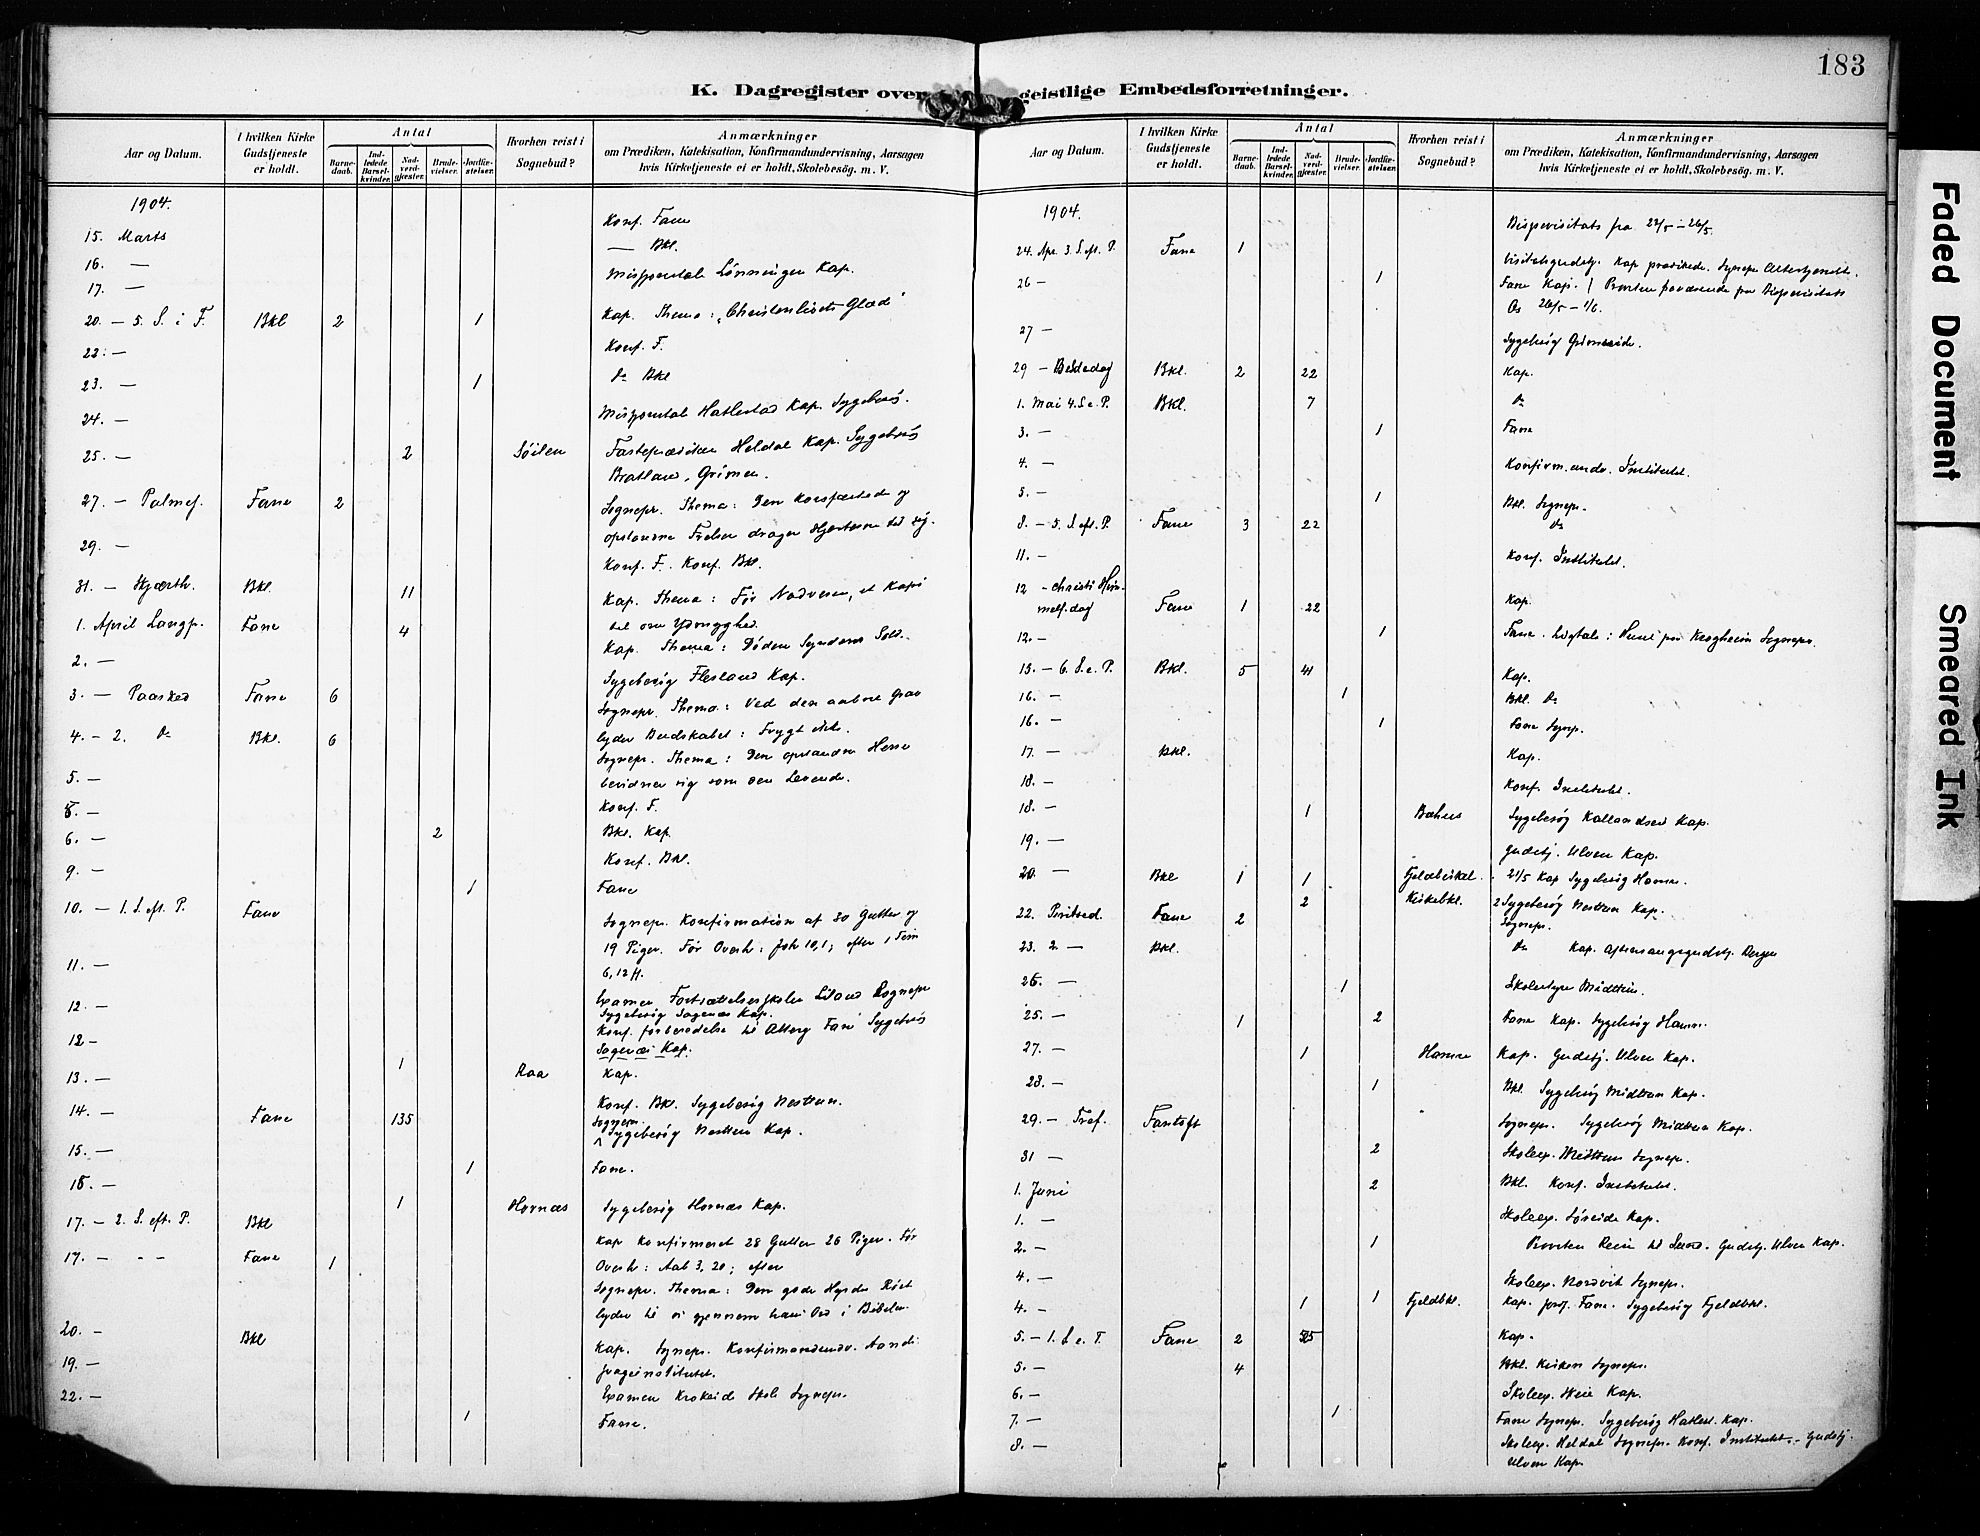 183
K. Dagregister over geistlige Embedsforretninger.
Aar og Datum.
I hvilken Kirke Gudstjeneste er holdt.
Antal
Barne-daab.
Ind-ledede Barsel-kvinder.
Nad-verd-gjæster.
Brude-vielser.
Jordfæ-stelser.
Hvorhen reist i Sognebud?
Anmærkninger
om Prædiken, Katekisation, Konfirmandundervisning, Aarsagen
hvis Kirketjeneste ei er holdt, Skolebesög. m. V.
1904.
15. Marts Konf. Fane
16. — — Bkl.
17. — Kap.
20. — 5. S. i F. Bkl 2 1 Kap. Thema: "Christenlivets Glæde"
22. — Konf. F.
23. — 1 do Bkl
24. — Hatlestad Kap. Sygebesøg.
25. — 2 Søilen Fasteprædiken Heldal Kap. Sygebesøg
Bratland, Grimen.
27. — Palmes. Fane 2 Sognepr. Thema: Den korsfæstede og
opstandne Frelser drager Hjerterne til sig.
29. — Konf. F. Konf. Bkl.
31. — Skjærth. Bkl. 11 Kap. Thema: Før Nadveren, et Kapi
tel om Ydmyghed.
1. April Langfr. Fane 4 Kap. Thema: Døden Syndens Sold.
2. — Sygebesøg Flesland Kap.
3. — Paasked Fane 6 Sognepr. Thema: Ved den aabne Grav
lyder Budskabet: Frygt ikke.
4. — 2. do Bkl. 6 Sognepr. Thema: Den opstandne Herre
bevidner sig som den Levende.
5. — Konf. F.
5. — 2 Bkl. Kap.
6. — Konf. Bkl.
9. — 1 Fane
10. — 1. S. eft. P. Fane Sognepr. Konfirmation af 30 Gutter og
19 Piger. Før Overh: Joh 10,1; efter 1 Tim
6,12 ff.
11. — Examen Fortsættelsesskolen Liland Sognepr
Sygebesøg Kap.
12. — Konf. forberedelse til Alterg Fane Sygebesøg
12 — Kap.
13. — 1 Raa Kap.
Konf. Bkl. Sygebesøg Nesttun.
14. — Fane 135 Sognepr.
Sygebesøg Nesttun Kap.
15. — 1 Fane.
16. — 1 Hornnæs Sygebesøg Hornnæs Kap.
17. — 2. S. eft. P. Bkl Kap Konfirmeret 28 Gutter 26 Piger. Før
Overh: Aab 3, 20; efter
17. — - - Fane 1 Sognepr. Thema: Den gode Hyrdes Røst
lyder til os gjennem hans Ord i Bibelen
20. — Bkl Kap. Sognepr. Konfirmandundv. Aands
19. — svageinstitutet.
22. — Examen Krokeide Skole Sognepr.
1 Fane.
Aar og Datum.
I hvilken Kirke Gudstjeneste er holdt.
Antal
Barne-daab.
Ind-ledede Barsel-kvinder.
Nad-verd-gjæster.
Brude-vielser.
Jordfæ-stelser.
Hvorhen reist i Sognebud?
Anmærkninger
om Prædiken, Katekisation, Konfirmandundervisning, Aarsagen
hvis Kirketjeneste ei er holdt, Skolebesög. m. V.
1904.
Bispevisitats fra
24. Apr. 3. S. eft. P. Fane 1 Visitatsgudstj. Kap prædikede. Sognepr Altertjeneste.
26 — 1 Fane Kap. Provsten fraværende paa Bispevisitats
Os
27 — Sygebesøg Grimseide.
29 — Bededag Bkl. 2 22 Kap.
1. Mai 4. S. e. P. Bkl. 7 do
3. — 1 Fane
4. — Konfirm.undv. Institutet.
5. — 1 Bkl. Sognepr.
8. — 5. S. eft. P. Fane 3 22 do
11. — Konf. Institutet.
12 — Christi Him-
melf.dag Fane 1 22 Kap.
12. — 1 Fane. Ligtale: Sognepr.
15. — 6. S. e. P. Bkl. 5 41 Kap.
16. — 1 Bkl. do
16. — 1 Fane Sognp.
17. — Bkl. Kap.
18. — Konf. Institutet.
18. — 1 Bøhus Sygebesøg Kallandseid Kap.
19. — Gudstj. Ulven Kap.
20. — Bkl 1 1 Fjeldbirkel. 21/5 Kap Sygebesøg Hamre.
2 Kirkebkl. Sygebesøg Nesttun Kap.
22. Pintsed. Fane 2 Sognepr.
23. 2. — Bkl. do Kap. Aftensangsgudstj. Bergen
25. — 1 Skolestyre Midttun.
25. — 1 2 Fane Kap. Sygebesøg Hamre.
27. — 1 Hamre Kap. Gudstj. Ulven Kap.
28. — 1 Bkl. Sygebesøg Midttun Kap.
29. — Tref. Fantoft Sognepr. Sygebesøg Midttun Kap.
31 — 2 Skoleex. Midttun Sognepr.
1. Juni 2 Bkl. Konf. Institutet.
1. — Skoleex. Søreide Kap.
2. — 1 Provsten Reise til Sund. Gudstj. Ulven Kap.
4. — Skoleex. Nordvik Sognepr.
4. — 1 1 Fjeldbkl. Kap. jordf. Fane. Sygebesøg Fjeldbkl.
5. — 1. S. e. T. Fane 2 55 Kap.
5. — 4 Bkl. Kirken Sognepr.
6. — Skoleex. Kap.
7. — 1 Fane Sognepr. Sygebesøg Hatlest. Kap.
8. — Skoleex. Heldal Sognepr. Konf. Institutet. — Gudstj.
Ulven Kap.
Faded Document
Smeared Ink